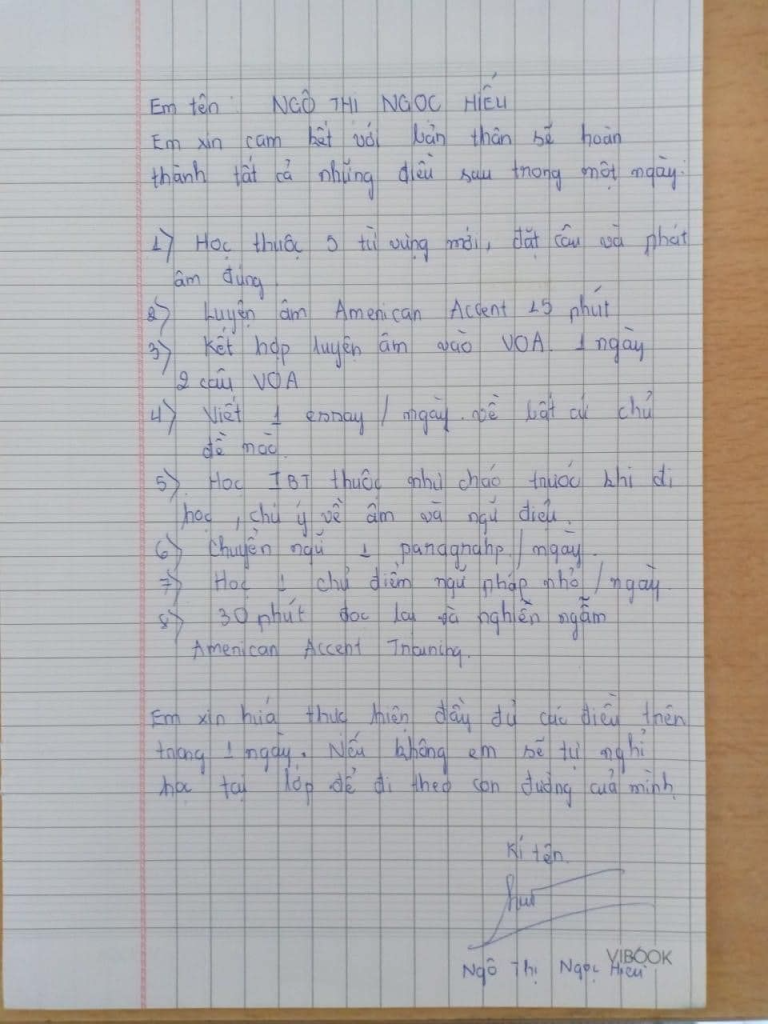 Em tên: NGÔ THỊ NGỌC HIẾU
Em xin cam kết với bản thân sẽ hoàn
thành tất cả những điều sau trong một ngày:
1) Học thuộc 5 từ vựng mới, đặt câu và phát
âm đúng
2) Luyện âm American Accent 15 phút
3) Kết hợp luyện âm vào VOA. 1 ngày
2 câu VOA
4) Viết 1 essay / ngày về bất cứ chủ
đề nào.
5) Học IBT thuộc như cháo trước khi đi
học, chú ý về âm và ngữ điệu.
6) Chuyển ngữ 1 paragrahp / ngày.
7) Học 1 chủ điểm ngữ pháp nhỏ / ngày.
8) 30 phút đọc lại và nghiền ngẫm
American Accent Training.
Em xin hứa thực hiện đầy đủ các điều trên
trong 1 ngày. Nếu không em sẽ tự nghỉ
học tại lớp để đi theo con đường của mình.
Kí tên
Ngô Thị Ngọc Hiếu
VIBOOK